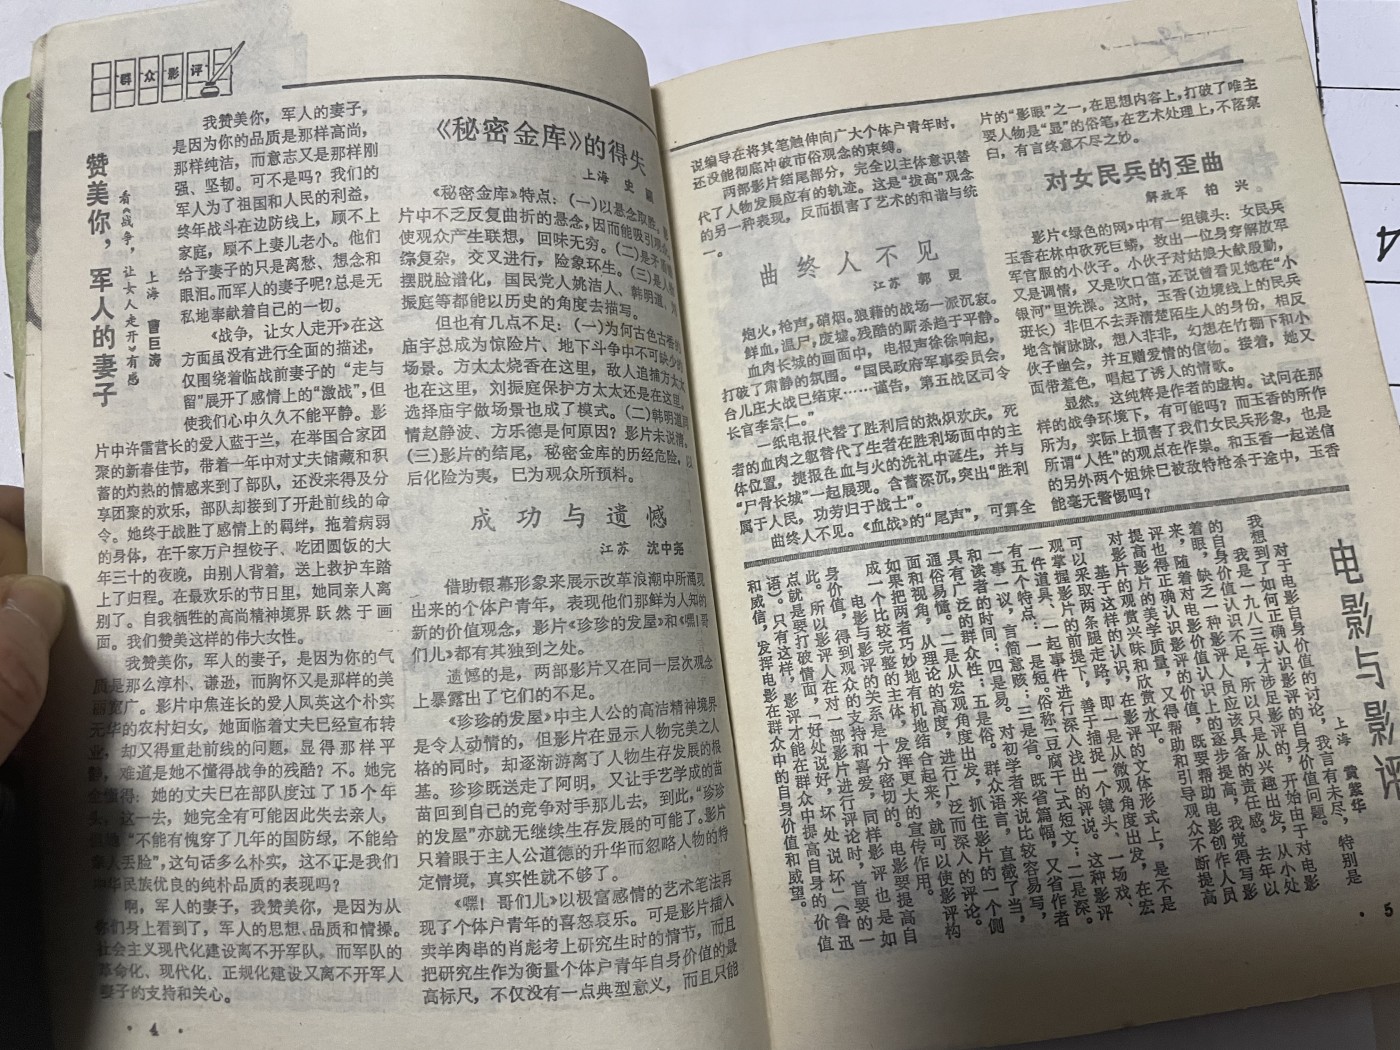 群众影评
赞美你，军人的妻子
看《战争，让女人走开》有感
上海 曹巨涛
我赞美你，军人的妻子，
是因为你的品质是那样高尚，
那样纯洁，而意志又是那样刚
强、坚韧。可不是吗？我们的
军人为了祖国和人民的利益，
终年战斗在边防线上，顾不上
家庭，顾不上妻儿老小。他们
给予妻子的只是离愁、想念和
眼泪。而军人的妻子呢？总是无
私地奉献着自己的一切。
《战争，让女人走开》在这
方面虽没有进行全面的描述，
仅围绕着临战前妻子的“走与
留”展开了感情上的“激战”，但
使我们心中久久不能平静。影
片中许雷营长的爱人蓝于兰，在举国合家团
聚的新春佳节，带着一年中对丈夫储藏和积
蓄的灼热的情感来到了部队，还没来得及分
享团聚的欢乐，部队却接到了开赴前线的命
令。她终于战胜了感情上的羁绊，拖着病弱
的身体，在千家万户捏饺子、吃团圆饭的大
年三十的夜晚，由别人背着，送上救护车踏
上了归程。在最欢乐的节日里，她同亲人离
别了。自我牺牲的高尚精神境界跃然于画
面。我们赞美这样的伟大女性。
我赞美你，军人的妻子，是因为你的气
质是那么淳朴、谦逊，而胸怀又是那样的美
丽宽广。影片中焦连长的爱人凤英这个朴实
无华的农村妇女，她面临着丈夫已经宣布转
业，却又得重赴前线的问题，显得那样平
静，难道是她不懂得战争的残酷？不。她完
全懂得：她的丈夫已在部队度过了15个年
头，这一去，她完全有可能因此失去亲人，
“不能有愧穿了几年的国防绿，不能给
家人丢脸”，这句话多么朴实，这不正是我们
中华民族优良的纯朴品质的表现吗？
啊，军人的妻子，我赞美你，是因为从
你们身上看到了，军人的思想、品质和情操。
社会主义现代化建设离不开军队，而军队的
革命化、现代化、正规化建设又离不开军人
妻子的支持和关心。
·4·
《秘密金库》的得失
上海 史
《秘密金库》特点：（一）以悬念取胜。影
片中不乏反复曲折的悬念，因而能吸引观众，
使观众产生联想，回味无穷。（二）是矛盾错
综复杂，交叉进行，险象环生。（三）是人物
摆脱脸谱化，国民党人姚洁人、韩明道、刘
振庭等都能以历史的角度去描写。
但也有几点不足：（一）为何古色古香的
庙宇总成为惊险片、地下斗争中不可缺少的
场景。方太太烧香在这里，敌人追捕方太太
也在这里，刘振庭保护方太太还是在这里。
选择庙宇做场景也成了模式。（二）韩明道同
情赵静波、方乐德是何原因？影片未说清。
（三）影片的结尾，秘密金库的历经危险，以
后化险为夷，已为观众所预料。
成功与遗憾
江苏 沈中尧
借助银幕形象来展示改革浪潮中所涌现
出来的个体户青年，表现他们那鲜为人知的
新的价值观念，影片《珍珍的发屋》和《嘿！哥
们儿》都有其独到之处。
遗憾的是，两部影片又在同一层次观念
上暴露出了它们的不足。
《珍珍的发屋》中主人公的高洁精神境界
是令人动情的，但影片在显示人物完美之人
格的同时，却逐渐游离了人物生存发展的根
基。珍珍既送走了阿明，又让手艺学成的苗
苗回到自己的竞争对手那儿去，到此，“珍珍
的发屋”亦就无继续生存发展的可能了。影片
只着眼于主人公道德的升华而忽略人物的特
定情境，真实性就不够了。
《嘿！哥们儿》以极富感情的艺术笔法再
现了个体户青年的喜怒哀乐。可是影片插入
卖羊肉串的肖彪考上研究生时的情节，而且
把研究生作为衡量个体户青年自身价值的最
高标尺，不仅没有一点典型意义，而且只能
说编导在将其笔触伸向广大个体户青年时，
还没能彻底冲破市俗观念的束缚。
两部影片结尾部分，完全以主体意识替
代了人物发展应有的轨迹。这是“拔高”观念
的另一种表现，反而损害了艺术的和谐与统
一。
曲终人不见
江苏 郭更
炮火，枪声，硝烟。狼藉的战场一派沉寂。
鲜血，温尸，废墟。残酷的厮杀趋于平静。
血肉长城的画面中，电报声徐徐响起，
打破了肃静的氛围。“国民政府军事委员会，
台儿庄大战已结束……谨告，第五战区司令
长官李宗仁。”
一纸电报代替了胜利后的热炽欢庆，死
者的血肉之躯替代了生者在胜利场面中的主
体位置，捷报在血与火的洗礼中诞生，并与
“尸骨长城”一起展现。含蓄深沉，突出“胜利
属于人民，功劳归于战士”。
曲终人不见。《血战》的“尾声”，可算全
片的“影眼”之一，在思想内容上，打破了唯主
要人物是“显”的俗笔，在艺术处理上，不落窠
臼，有言终意不尽之妙。
对女民兵的歪曲
解放军 柏兴
影片《绿色的网》中有一组镜头：女民兵
玉香在林中砍死巨蟒，救出一位身穿解放军
军官服的小伙子。小伙子对姑娘大献殷勤，
又是调情，又是吹口笛，还说曾看见她在“小
银河”里洗澡。这时，玉香（边境线上的民兵
班长）非但不去弄清楚陌生人的身份，相反
地含情脉脉，想入非非，幻想在竹棚下和小
伙子幽会，并互赠爱情的信物。接着，她又
面带羞色，唱起了诱人的情歌。
显然，这纯粹是作者的虚构。试问在那
样的战争环境下，有可能吗？而玉香的所作
所为，实际上损害了我们女民兵形象，也是
所谓“人性”的观点在作祟。和玉香一起送信
的另外两个姐妹已被敌特枪杀于途中，玉香
能毫无警惕吗？
电影与影评
上海 黄繁华
对于电影自身价值的讨论，我言有未尽，特别是
我想到了如何正确认识影评的自身价值问题。
我是一九八三年才涉足影评的，开始由于对电影
的自身价值认识不足，所以只是从兴趣出发，从小处
着眼，缺乏一种影评人员应该具备的责任感。去年以
来，随着对电影价值认识上的逐步提高，我觉得写影
评也得正确认识影评的价值，既要帮助电影创作人员
提高影片的美学质量，又得帮助和引导观众不断提高
对影片的观赏兴味和欣赏水平。
基于这样的认识，在影评的文体形式上，是不是
可以采取两条腿走路，即一是从微观角度出发，在宏
观掌握影片的前提下，善于捕捉一个镜头、一场戏、
一件道具、一起事件进行深入浅出的评说。这种影评
有五个特点：一是短。俗称「豆腐干」式短文；二是深。
一事一议，言简意赅；三是省。既省篇幅，又省作者
和读者的时间；四是易。对初学者来说比较容易写，
具有广泛的群众性；五是俗。群众语言，直截了当，
通俗易懂。二是从宏观角度出发，抓住影片的一个侧
面和视角，从理论的高度，进行广泛而深入的评论。
如果把两者巧妙地有机地结合起来，就可以使影评构
成一个比较完整的主体，发挥更大的宣传作用。
电影与影评的关系是十分密切的。电影要提高自
身价值，得到观众的支持和喜爱，同样影评也是如
此。所以影评人在对一部影片进行评论时，首要的一
点就是要打破情面，「好处说好，坏处说坏」（鲁迅
语）。只有这样，影评才能在群众中提高自身的价值
和威信，发挥电影在群众中的自身价值和威望。
·5